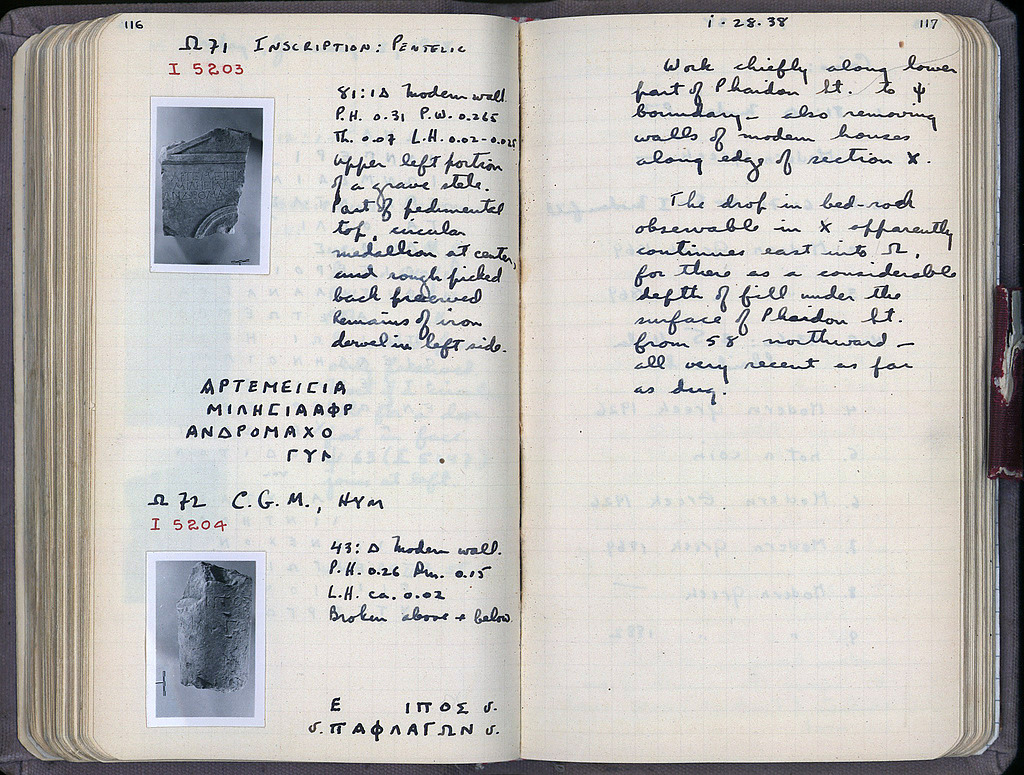 116
Ω 71 INSCRIPTION: PENTELIC
I 5203
81:1Δ Modern wall.
P.H. 0.31 P.W. 0.265
Th. 0.07 L.H. 0.02-0.025
Upper left portion
of a grave stele.
Part of pedimental
top, circular
medallion at center,
and rough picked
back preserved
Remains of iron
dowel in left side.
ΑΡΤΕΜΕΙCΙΑ
ΜΙΛΗCΙΑΑΦΡ
ΑΝΔΡΟΜΑΧΟ
ΓΥΛ
Ω 72 C.G.M., HYM
I 5204
43:Δ Modern wall.
P.H. 0.26 Dm. 0.15
L.H. ca. 0.02
Broken above + below
Ε ΙΠΟΣ υ.
υ. ΠΑΦΛΑΓΩΝ υ.
1-28-38
117
Work chiefly along lower
part of Phaidon St. to Ψ
boundary - also removing
walls of modern houses
along edge of section X.
The drop in bed-rock
observable in X apparently
continues east into Ω,
for there is a considerable
depth of fill under the
surface of Phaidon St.
from 58 northward -
all very recent as far
as dug.